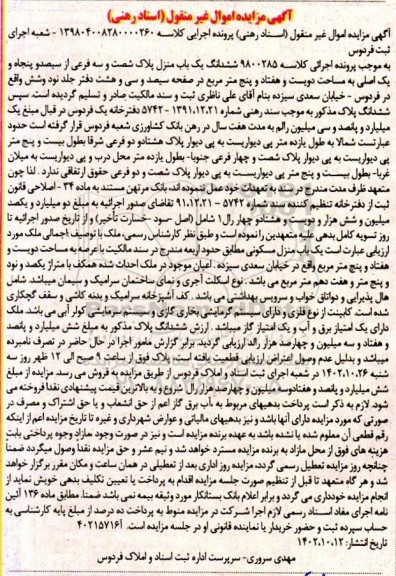 آگهی مزایده اموال غیر منقول (اسناد رهنی)
آگهی مزایده اموال غیر منقول (اسناد رهنی) پرونده اجرایی کلاسه ۱۳۹۸۰۴۰۰۸۲۸۰۰۰۰۲۶۰ - شعبه اجرای
ثبت فردوس
به موجب پرونده اجرائی کلاسه ۹۸۰۰۲۸۵ ششدانگ یک باب منزل پلاک شصت و سه فرعی از سیصدو پنجاه و
یک اصلی به مساحت دویست و هفتاد و پنج متر مربع در صفحه سیصد و سی و هشت دفتر جلد نود وشش واقع
در فردوس - خیابان سعدی سیزده بنام آقای علی ناظری ثبت و سند مالکیت صادر و تسلیم گردیده است. سپس
ششدانگ پلاک مذکور به موجب سند رهنی شماره ۵۷۴۲ - ۱۳۹۱.۱۲.۲۱ دفترخانه یک فردوس در قبال مبلغ یک
میلیارد و پانصد و سی میلیون رالم به مدت هفت سال در رهن بانک کشاورزی شعبه فردوس قرار گرفته است حدود
عبارتست شمالا به طول یازده متر پی دیواریست به پی دیوار پلاک هشتادو دو فرعی شرقا بطول بیست و پنج متر
پی دیواریست به پی دیوار پلاک شصت و چهار فرعی جنوبا- بطول یازده متر محل درب و پی دیواریست به میلان
غربا- بطول بیست و پنج متر پی دیواریست به پی دیوار پلاک شصت و دو فرعی حقوق ارتفاقی ندارد . لذا چون
متعهد ظرف مدت مندرج در سند به تعهدات خود عمل ننموده اند، بانک مرتهن مستند به ماده ۳۴ - اصلاحی قانون
ثبت از دفترخانه تنظیم کننده سند شماره ۵۷۴۲ - ۹۱.۱۲.۲۱ تقاضای صدور اجرائیه به مبلغ دو میلیارد و یکصد
میلیون و شش هزار و دویست و هشتادو چهار رال۱ شامل (اصل -سود -خسارت تأخیر) و از تاریخ صدور اجرائیه تا
روز تسویه کامل بدهی علیه متعهدین را نموده است و طبق نظر کارشناس رسمی، ملک با توصیف اجمالی ملک مورد
ارزیابی عبارت است یک باب منزل مسکونی مطابق حدود اربعه مندرج در سند مالکیت با عرصه به مساحت دویست و
هفتاد و پنج متر مربع واقع در خیابان سعدی سیزده . اعیان موجود در ملک احداث شده همکف با متراژ یکصد و نود
و پنج متر و هفت دهم متر مربع می باشد . نوع اسکلت آجری و نمای ساختمان سرامیک و سیمان میباشد. شامل
هال پذیرایی و دواتاق خواب و سرویس بهداشتی می باشد . کف آشپزخانه سرامیک و بدنه کاشی و سقف گچکاری
شده است. کابینت از نوع فلزی و دارای سیستم گرمایشی بخاری گازی و سیستم سرمایشی کولر آبی می باشد. ملک
دارای یک امتیاز برق و آب و یک امتیاز گاز میباشد . ارزش ششدانگ پلاک مذکور به مبلغ شش میلیارد و پانصد
و هفتاد و سه میلیون و چهارصد هزار رالد ارزیابی گردید. برابر گزارش مامور اجرا در حال حاضر در تصرف نامبرده
میباشد و بدلیل عدم وصول اعتراض ارزیابی قطعیت یافته است، پلاک فوق از ساعت ۹ صبح الی ۱۲ ظهر روز سه
شنبه ۱۴۰۲.۱۰.۲۶ در شعبه اجرای ثبت اسناد و املاک فردوس از طریق مزایده به فروش می رسد. مزایده از مبلغ
شش میلیارد و پانصد و هفتادوسه میلیون و چهارصد هزار رال شروع و به بالاترین قیمت پیشنهادی نقدا فروخته می
شود. لازم به ذکر است پرداخت بدهیهای مربوط به -آب برق گاز اعم از حق انشعاب و یا حق اشتراک و مصرف در
صورتی که مورد مزایده دارای آنها باشد و نیز بدهیهای مالیاتی و عوارض شهرداری و غیره تا تاریخ مزایده اعم از اینکه
رقم قطعی آن معلوم شده یا نشده باشد به عهده برنده مزایده است و نیز در صورت وجود ،مازاد وجوه پرداختی بابت
هزینه های فوق از محل مازاد به برنده مزایده مسترد خواهد شد و نیم عشر و حق مزایده نقدا وصول میگردد ضمناً
چنانچه روز مزایده تعطیل رسمی گردد، مزایده روز اداری بعد از تعطیلی در همان ساعت و مکان مقرر برگزار خواهد
شد و هر گاه متعهد تا قبل از تنظیم صورت جلسه مزایده اقدام به پرداخت یا تعیین تکلیف بدهی خویش نماید از
انجام مزایده خودداری می گردد و برابر اعلام بانک بستانکار مورد وثیقه بیمه نمی باشد ضمنا، مطابق ماده ۱۳۶ آئین
نامه اجرای مفاد اسناد رسمی لازم اجرا شرکت در مزایده منوط به پرداخت ده درصد از مبلغ پایه کارشناسی به
حساب سپرده ثبت و حضور خریدار یا نماینده قانونی او در جلسه مزایده است. آ۴۰۲۱۵۷۱۶
تاریخ انتشار: ۱۴۰۲.۱۰.۱۲
مهدی سروری- سرپرست اداره ثبت اسناد و املاک فردوس